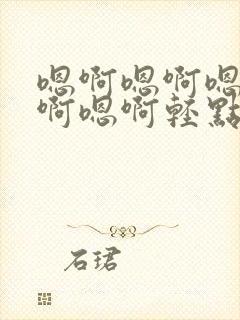 嗯啊嗯啊嗯
啊嗯啊輕點
石珺